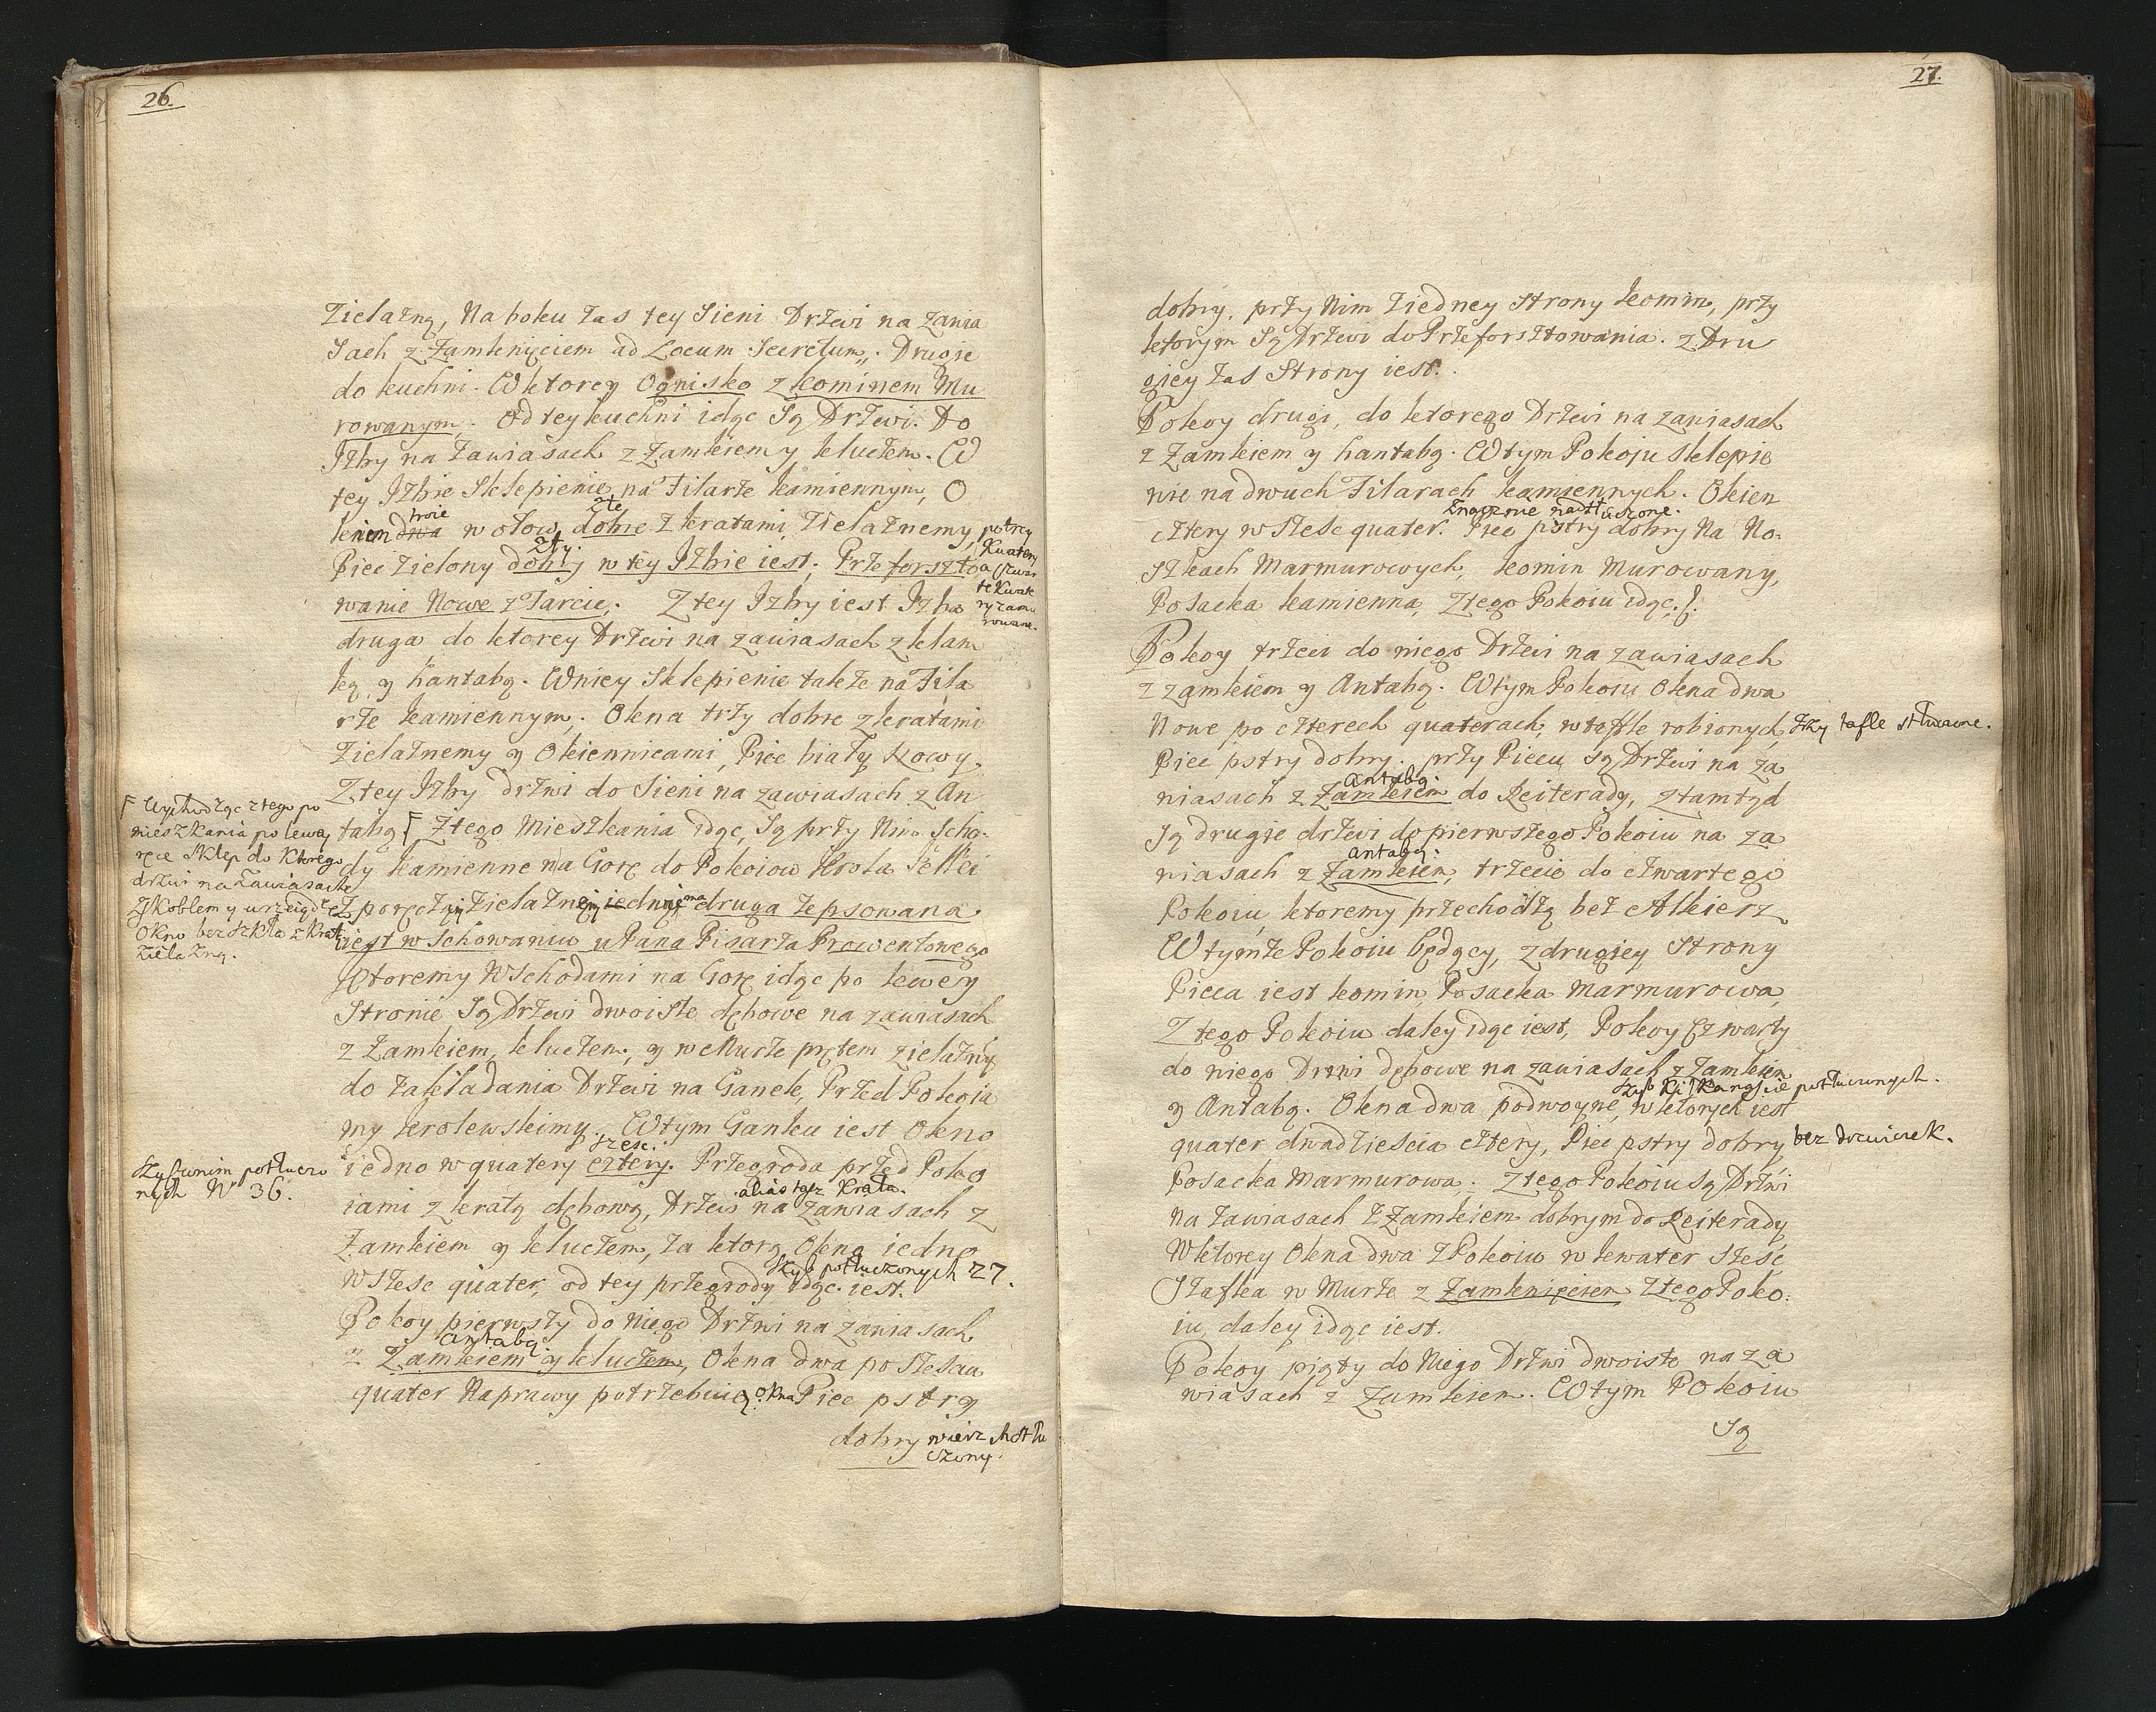 26.
Zielazną, Na boku zas tey Sieni Drzwi na zawia
Sach z Zamknięciem ad Locum Secretum„. Drugie
do kuchni. W ktorey Ognisko z kominem Mu
rowanym. Od tey kuchni idąc Są Drzwi. Do
Izby na Zawiasach z Zamkiem y kluczem. W
tey Izbie Sklepienie na Filarze kamiennym, O
troie złe
kien dwa w ołow dobre z kratami Zielaznemy potrzy
Zły. Kwatery
Piec Zielony dobry w tey Izbie iest. Przeforszto a czwar
te Kwate
wanie Nowe z Tarcic. Z tey Izby iest Izba ry zamu
rowane.
druga do ktorey Drzwi na zawiasach z klam
ką, y hantabą. W niey Sklepienie także na Fila
rze kamiennym. Okna trzy dobre z kratami
Zielaznemy y Okiennicami, Piec biały Nowy.
Z tey Izby drzwi do Sieni na zawiasach z An
tabą Z tego Mieszkania idąc, Są przy Nim Scho.
dy kamienne na Gorę do Pokoiow Krola Je Mci
Z poręczą Zielazną iedną druga zepsowana
iest w Schowaniu u Pana Pisarza Prowentowego
Ktoremy W Schodami na Gorę idąc po lewey
Stronie Są Drzwi dwoiste dębowe na zawiasach
z Zamkiem, kluczem, y w Murze prętem zielaznym
do zakładania Drzwi na Ganek, Przed Pokoia
my krolewskimy. W tym Ganku iest Okno
szesc.
iedno w quatery cztery. Przegroda przed Poko
alias też Krata.
iami z kratą dębową, Drzwi na zawiasach z
Zamkiem y kluczem, za ktorą Okno iedno
Szyb potłuczonych 27.
w Szesc quater, od tey przegrody idąc iest.
Pokoy pierwszy do Niego Drzwi na zawiasach
Antabą
z Zamkiem y kluczem, Okna dwa po Szesciu
quater Naprawy potrzebuią okna Piec pstry
dobry wierzch stłu
czony.
Wychodząc z tego po
mieszkania po lewey
ręce Sklep do Ktorego
drzwi na Zawiasach
z Skoblem y wrzeciądzem
Okno bez szkła z Kratą
Zielazną.
Szyb w nim potłuczo
nych N 36.
27.
dobry. przy Nim z iedney Strony komin, przy
ktorym Są Drzwi do Przeforsztowania. z Dru
giey zas Strony iest.
Pokoy drugi, do ktorego Drzwi na zawiasach
z Zamkiem y hantabą. W tym Pokoju sklepie
nie na dwuch Filarach kamiennych. Okien
Znacznie nadtłuczone.
cztery w Szesc quater. Piec pstry dobry Na No.
Szkach Marmurowych, komin Murowany,
Posacka kamienna, Z tego Pokoiu idąc.
Pokoy trzeci do niego Drzwi na zawiasach
z zamkiem y Antabą. W tym Pokoiu Okna dwa
Nowe po czterech quaterach, w tafle robionych, trzy tafle stłuczone.
Piec pstry dobry. przy Piecu są Drzwi na za
Antabą.
wiasach z Zamkiem do Reiterady, z tamtąd
Są drugie drzwi do pierwszego Pokoiu na za
antabą.
wiasach z Zamkiem, trzecie do czwartego
Pokoiu ktoremy przechodzą bez Alkierz
W tymze Pokoiu będący, z drugiey Strony
Pieca iest komin, Posacka Marmurowa,
Z tego Pokoiu daley idąc iest, Pokoy Czwarty
do niego Drzwi dębowe na zawiasach z Zamkiem
Szyb Kilkanascie potłuczonych.
y Antabą. Okna dwa podwoyne, w ktorych iest
quater dwadziescia cztery, Piec pstry dobry bez drzwiczek.
Posacka Marmurowa. Z tego Pokoiu Są Drzwi
na Zawiasach z Zamkiem dobrym do Reiterady
W ktorey Okna dwa z Pokoiu w kwater Szesc
Szafka w Murze z Zamknięciem Z tego Poko.
iu daley idąc iest.
Pokoy piąty do Niego Drzwi dwoiste na za
wiasach z Zamkiem. W tym Pokoiu
Są